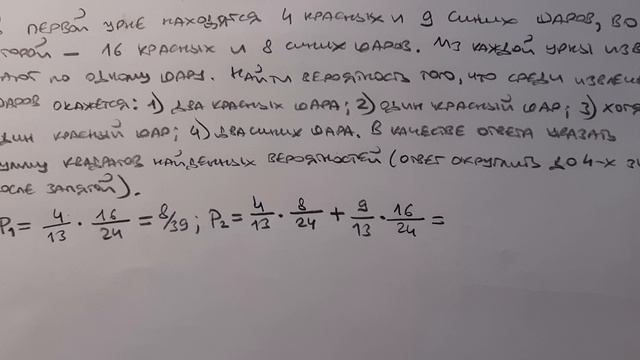 В ПЕРВОЙ УРНЕ НАХОДЯТСЯ 4 КРАСНЫХ И 9 СИНИХ ШАРОВ, ВО
ТОРОЙ – 16 КРАСНЫХ И 8 СИНИХ ШАРОВ. ИЗ КАЖДОЙ УРНЫ ИЗВ
АЮТ ПО ОДНОМУ ШАРУ. НАЙТИ ВЕРОЯТНОСТЬ ТОГО, ЧТО СРЕДИ ИЗВЛЕЧ
ШАРОВ ОКАЖЕТСЯ: 1) ДВА КРАСНЫХ ШАРА; 2) ОДИН КРАСНЫЙ ШАР; 3) ХОТЯ
ДИН КРАСНЫЙ ШАР; 4) ДВА СИНИХ ШАРА. В КАЧЕСТВЕ ОТВЕТА УКАЗАТЬ
УММУ КВАДРАТОВ НАЙДЕННЫХ ВЕРОЯТНОСТЕЙ (ОТВЕТ ОКРУГЛИТЬ ДО 4-Х ЗН
ОСЛЕ ЗАПЯТОЙ).
P₁ = 4/13 · 16/24 = 8/39; P₂ = 4/13 · 8/24 + 9/13 · 16/24 =